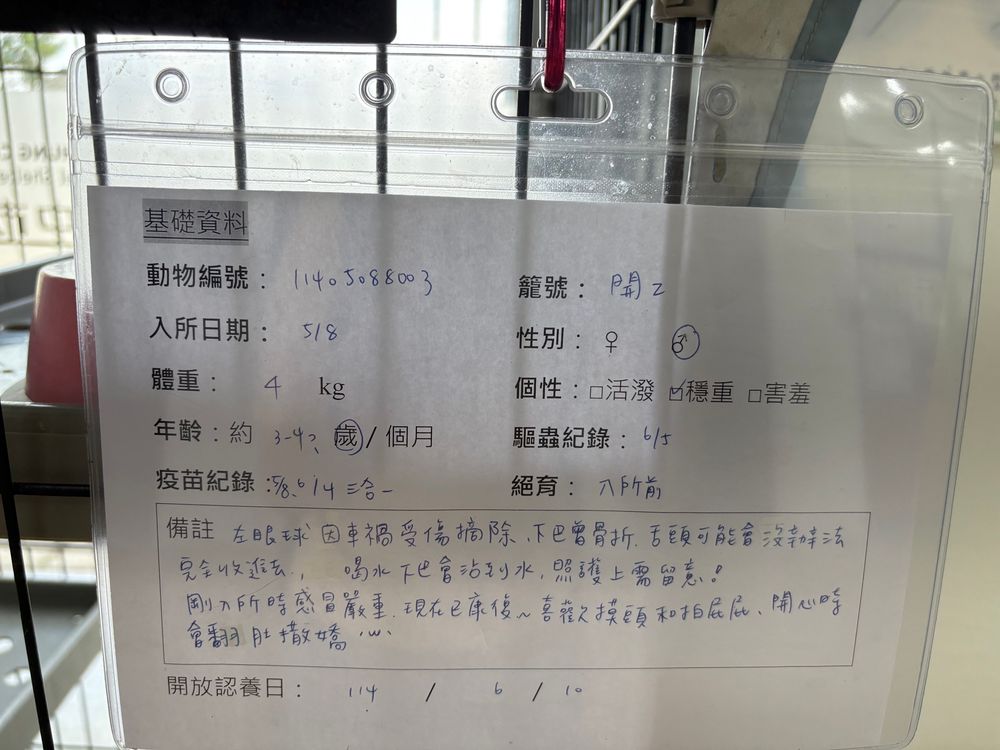 基礎資料
動物編號：11405088003
籠號：開2
入所日期：5/8
性別：♀ ♂
體重：4 kg
個性：□活潑 ☑穩重 □害羞
年齡：約 3-4? 歲/個月
驅蟲紀錄：6/5
疫苗紀錄：5/8、6/4 三合一
絕育：入所前
備註 左眼球因車禍受傷摘除、下巴曾骨折. 舌頭可能會沒辦法
完全收進去., 喝水下巴會沾到水, 照護上需留意!
剛入所時感冒嚴重. 現在已康復~喜歡摸頭和拍屁屁、開心時
會翻肚撒嬌
開放認養日：114 / 6 / 10